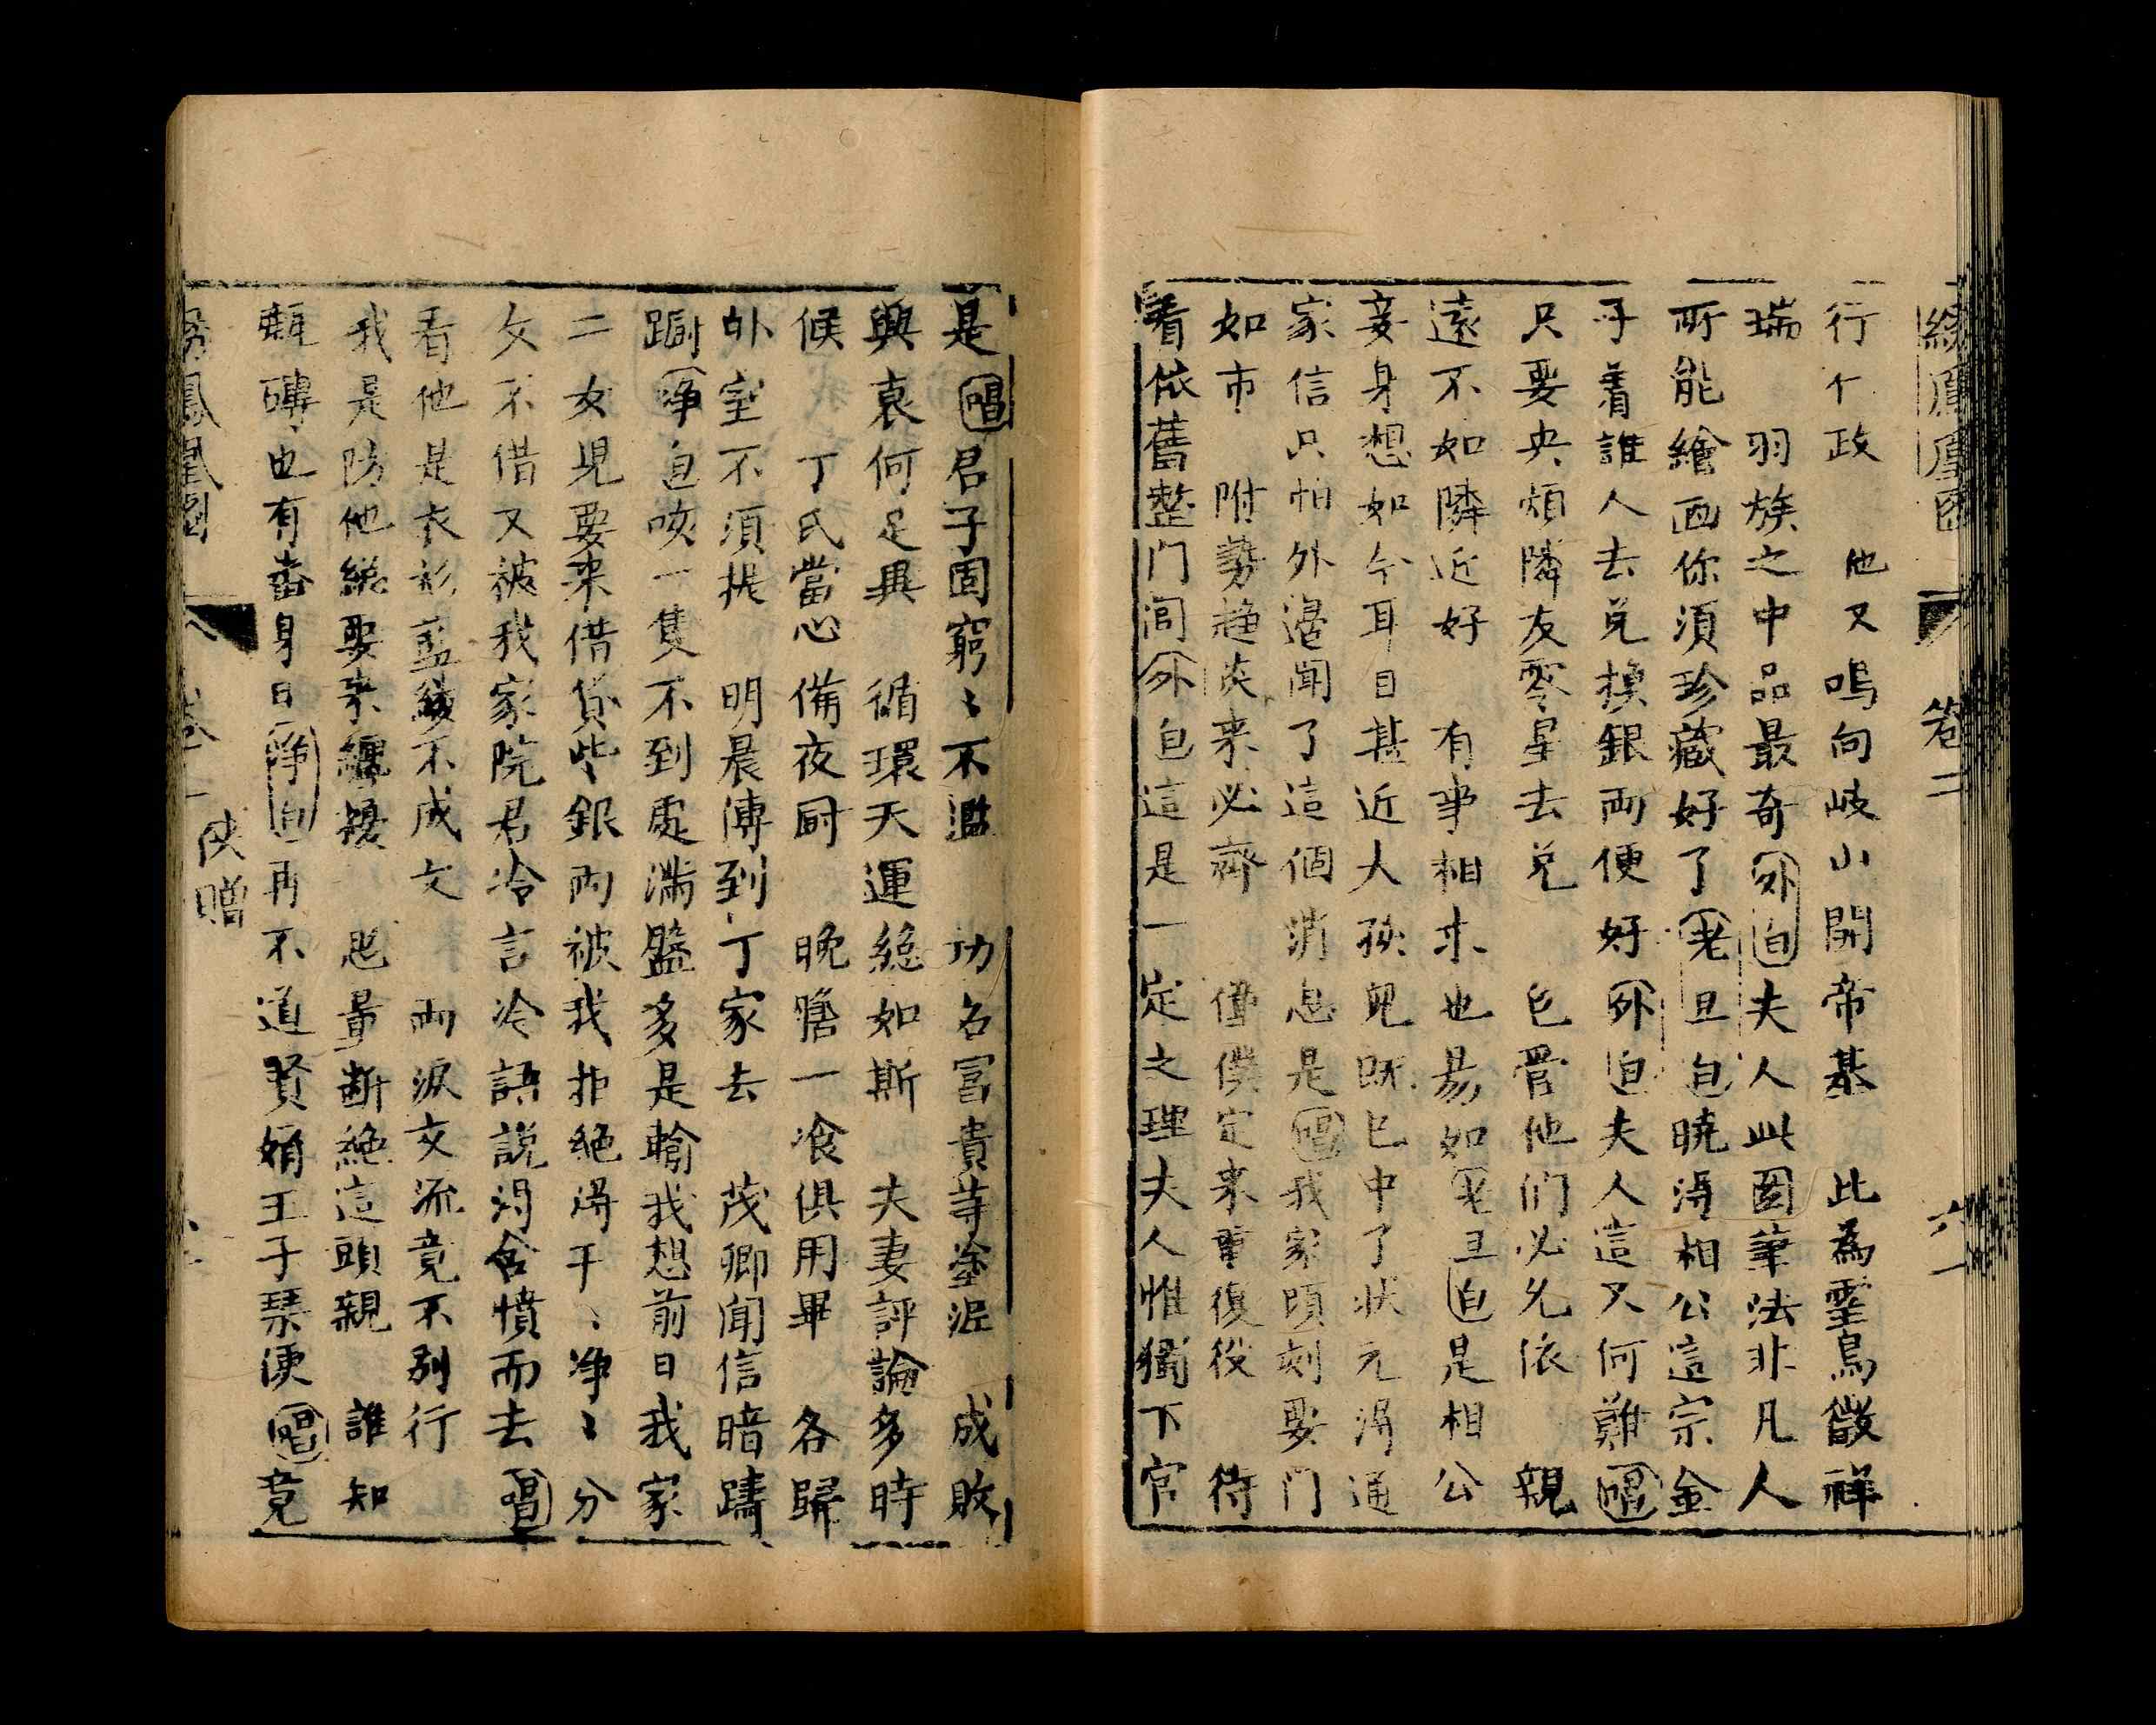 卷二
行个政　他又鳴向岐山開帝基　此為靈鳥徵祥
瑞　羽族之中品最奇外白夫人此圖筆法非凡人
所能繪画你須珍藏好了老旦白曉淂相公這宗金
子着誰人去兑換銀両便好外白夫人這又何難唱
只要央煩隣友零星去兑　包管他們必允依　親
遠不如隣近好　有事相求也易如老旦白是相公
妾身想如今耳目甚近大孩兒既已中了状元淂通
家信只怕外邊聞了這個消息是唱我家頃刻要門
如市　附勢趋炎来必齊　僮僕定来重復役　待
看依舊整门闾外白這是一定之理夫人惟獨下官
是唱君子固窮〻不濫　功名富貴等塗泥　成敗
興衰何足異　循環天運總如斯　夫妻評論多時
候　丁氏當心備夜厨　晚膳一飡俱用畢　各歸
外室不須提　明晨傳到丁家去　茂卿聞信暗躊
蹰净白咳一隻不到處滿盤多是輸我想前日我家
二女児要来借貸些銀両被我拒絕淂干〻净〻分
文不借又被我家院君冷言冷語說淂含憤而去唱
看他是衣衫藍縷不成文　両淚交流竟不别行
我是防他總要来纏擾　思量断絕這頭親　誰知
甎磚也有畨身日净白再不道贤婿王子琹便唱竟
鳳凰圖　卷二　伏贈